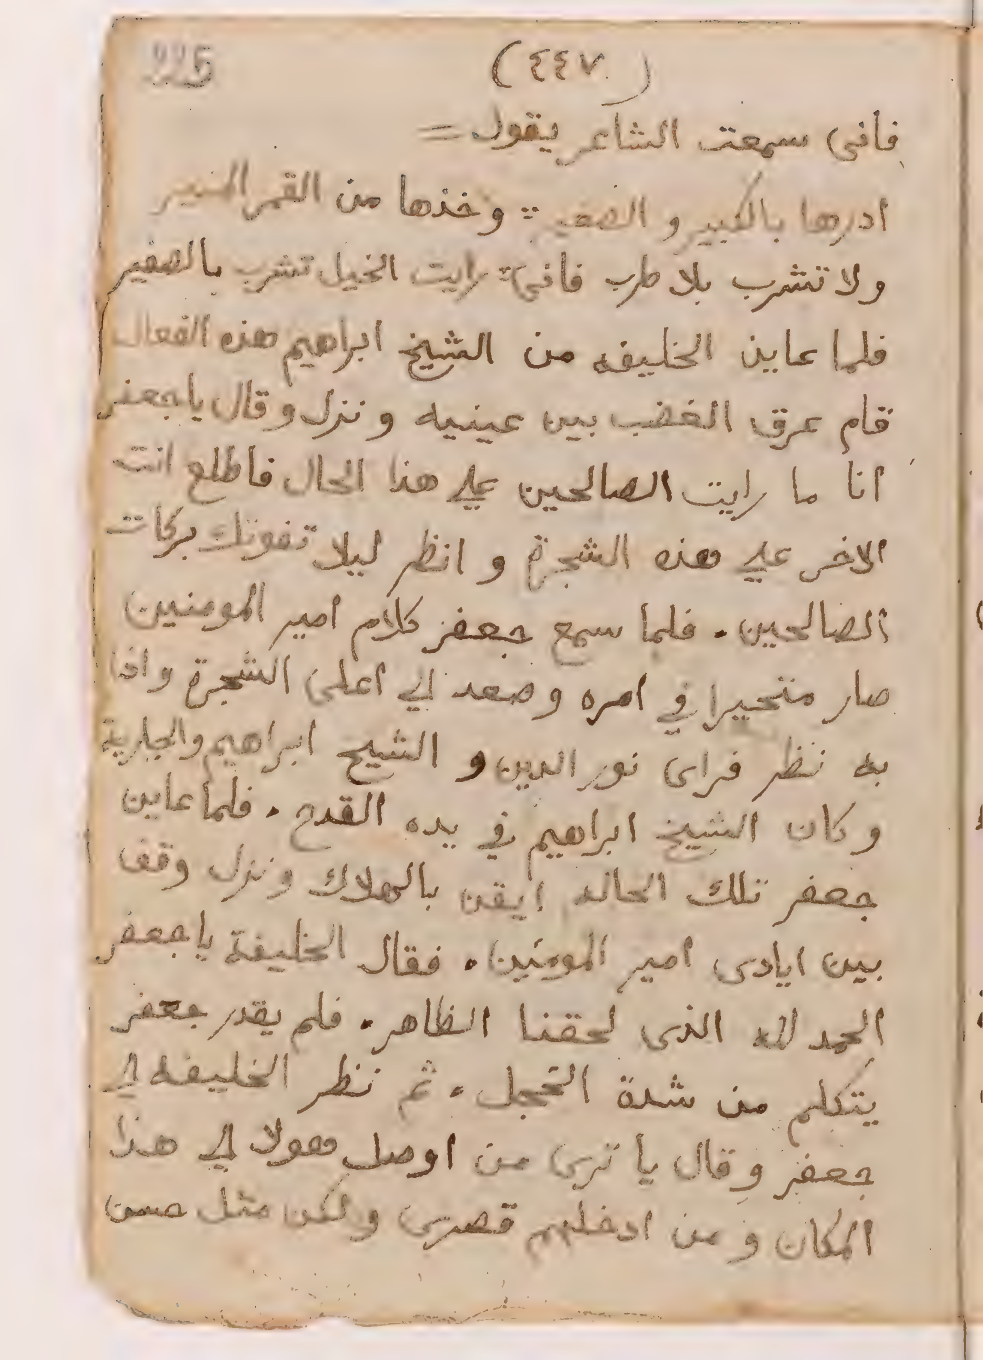 225
(٤٤٧)
فانى سمعت الشاعر يقول =
ادرها بالكبير و الصغير :: وخذها من القمر المنير
ولا تشرب بلا طرب فانى :: رايت الخيل تشرب بالصفير
فلما عاين الخليفه من الشيخ ابراهيم هذه الفعال
قام عرق الغضب بين عينيه و نزل و قال يا جعفر
انا ما رايت الصالحين علي هذا الحال فاطلع انت
الاخر علي هذه الشجرة و انظر ليلا تفوتك بركات
الصالحين . فلما سمع جعفر كلام امير المومنين
صار متحيرا في امره وصعد الي اعلى الشجرة واذا
به نظر فراى نور الدين و الشيخ ابراهيم والجارية
وكان الشيخ ابراهيم في يده القدح . فلما عاين
جعفر تلك الحاله ايقن بالهلاك ونزل وقف
بين ايادى امير المومنين . فقال الخليفة يا جعفر
الحمد لله الذى لحقنا الظاهر . فلم يقدر جعفر
يتكلم من شدة الخجل . ثم نظر الخليفه الي
جعفر وقال يا ترى من اوصل هولا الي هذا
المكان و من ادخلهم قصرى ولكن مثل حسن